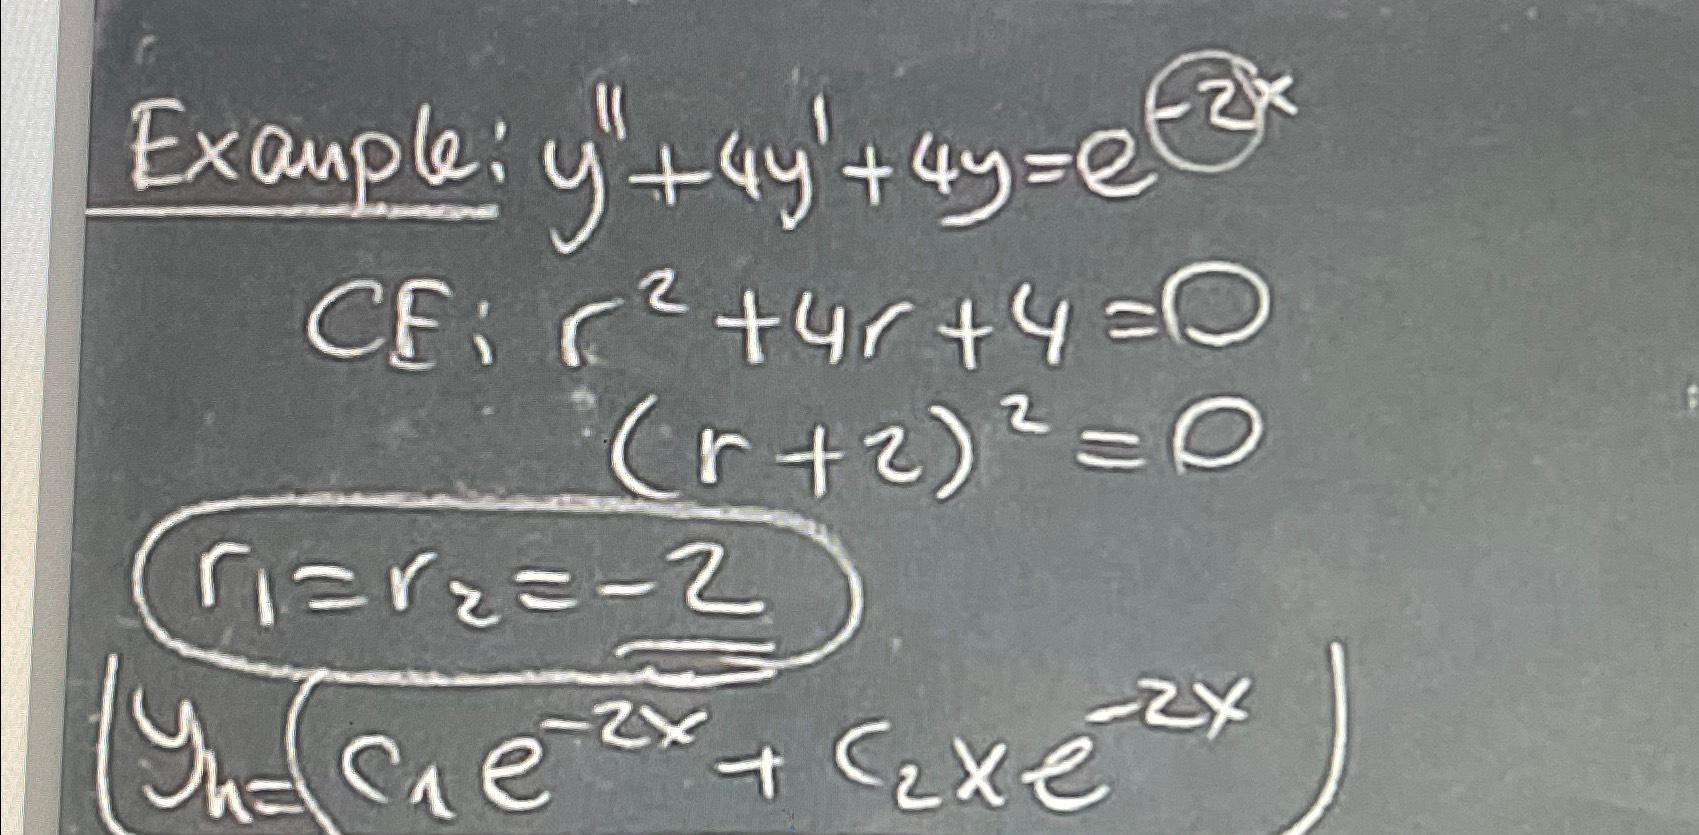 Example: y'' + 4y' + 4y = e^{-2x}
CE: r² + 4r + 4 = 0
(r + 2)² = 0
r₁ = r₂ = -2
yₕ = (c₁e^{-2x} + c₂xe^{-2x})